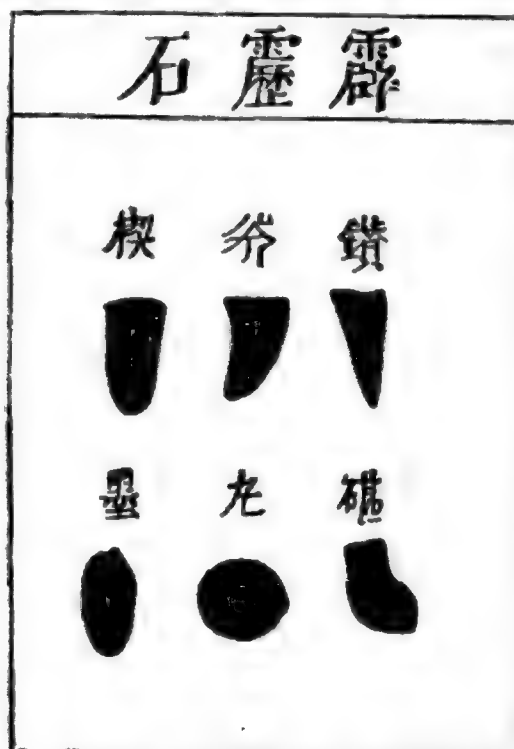 霹靂石
鑽斧楔
碪丸墨